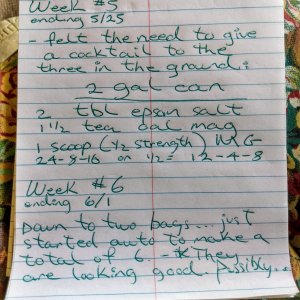 Week #5
ending 5/25
- felt the need to give
a cocktail to the
three in the ground:
2 gal can
2 tbl epson salt
1 1/2 tea cal mag
1 scoop (1/2 strength) MG
24-8-16 or 1/2 = 12-4-8
Week #6
ending 6/1
Down to two bags... just
started auto to make a
total of 6. - * They
are looking good. Possibly...